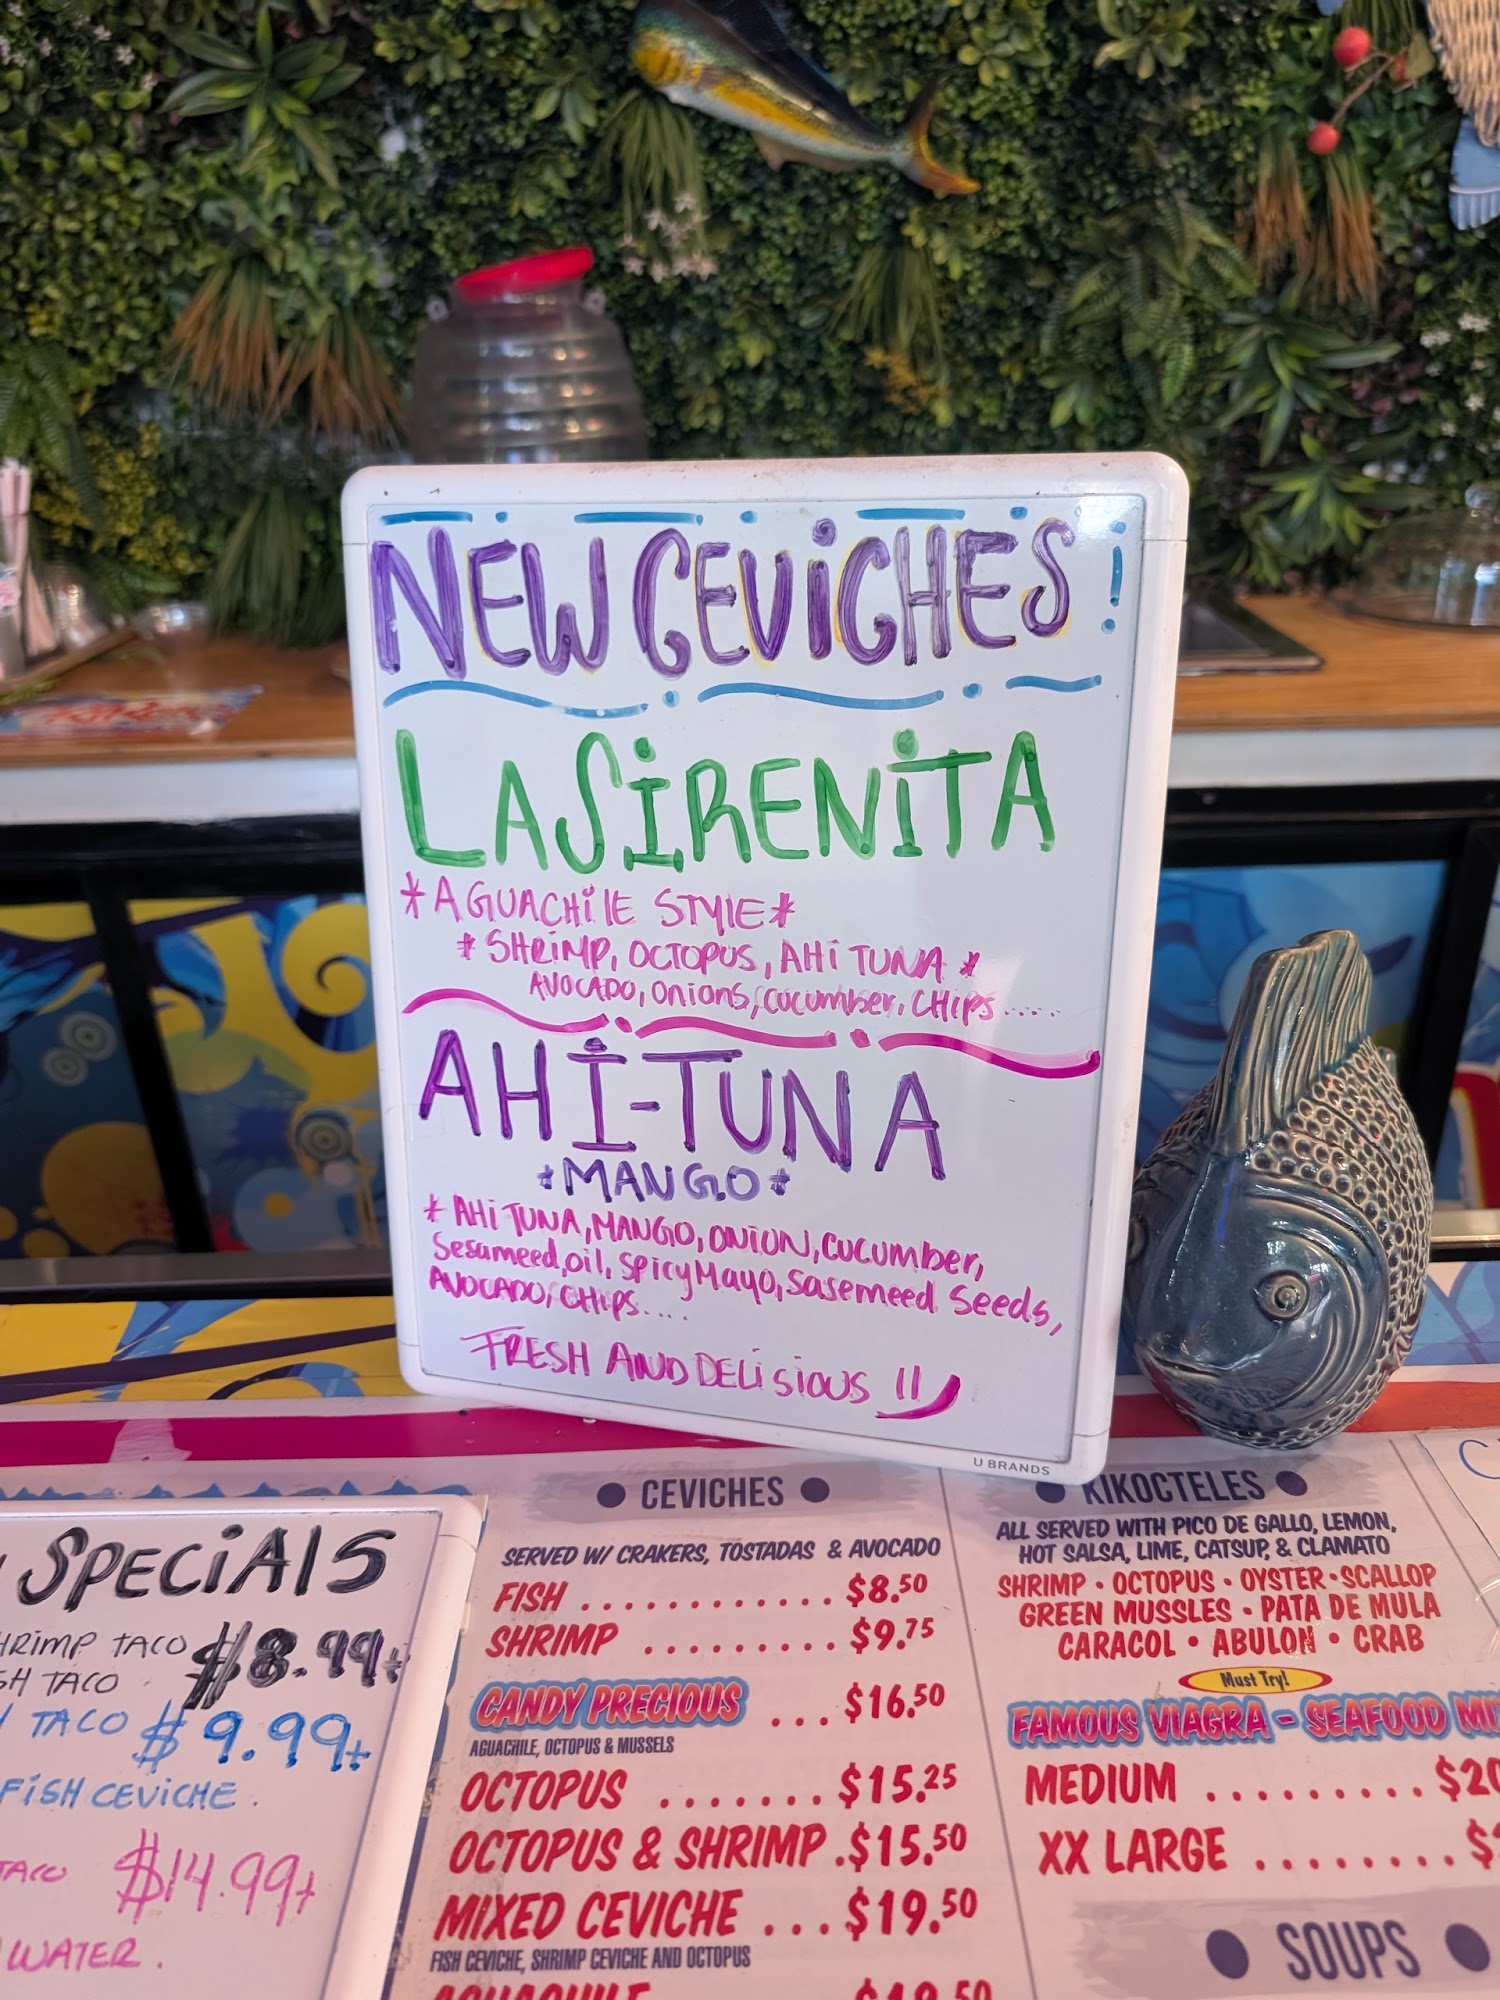 NEW CEVICHES!
LA SIRENITA
*AGUACHILE STYLE*
*SHRIMP, OCTOPUS, AHI TUNA*
AVOCADO, ONIONS, CUCUMBER, CHIPS.....
AHI-TUNA
*MANGO*
* AHI TUNA, MANGO, ONION, CUCUMBER,
Sesameed, oil, Spicy Mayo, Sasemeed Seeds,
AVOCADO, CHIPS....
FRESH AND DELISIOUS !!
U BRANDS
SPECIALS
TACO $8.99+
TACO
TACO $9.99+
FISH CEVICHE.
TACO $14.99+
WATER.
CEVICHES
SERVED W/ CRAKERS, TOSTADAS & AVOCADO
FISH ............ $8.50
SHRIMP ......... $9.75
CANDY PRECIOUS ... $16.50
AGUACHILE, OCTOPUS & MUSSELS
OCTOPUS ....... $15.25
OCTOPUS & SHRIMP . $15.50
MIXED CEVICHE ... $19.50
FISH CEVICHE, SHRIMP CEVICHE AND OCTOPUS
AGUACHILE
KIKOCTELES
ALL SERVED WITH PICO DE GALLO, LEMON,
HOT SALSA, LIME, CATSUP, & CLAMATO
SHRIMP • OCTOPUS • OYSTER • SCALLOP
GREEN MUSSLES • PATA DE MULA
CARACOL • ABULON • CRAB
Must Try!
FAMOUS VIAGRA - SEAFOOD
MEDIUM ......... $20
XX LARGE ........ $
SOUPS